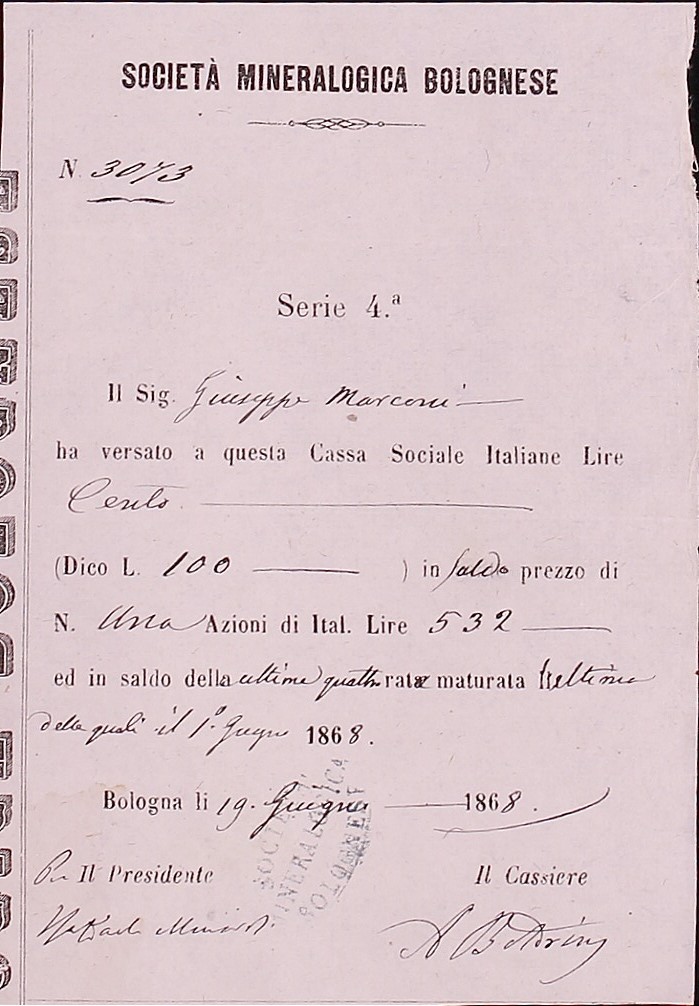 SOCIETÀ MINERALOGICA BOLOGNESE
N. 3073
Serie 4.ª
Il Sig. Giuseppe Marconi
ha versato a questa Cassa Sociale Italiane Lire
Cento
(Dico L. 100 ) in saldo prezzo di
N. Una Azioni di Ital. Lire 532
ed in saldo della ultime quattro rate maturata l'ultima
delle quali il 1º Giugno 1868.
Bologna li 19. Giugno 1868.
SOCIETÀ
MINERALOGICA
BOLOGNESE
Per Il Presidente
Il Cassiere
Raffaele